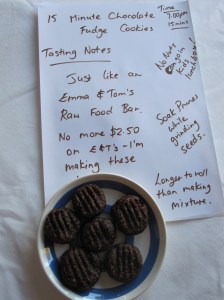 15 Minute Chocolate
Fudge Cookies
Time
7.00pm
15 mins
Tasting Notes
Just like an
Emma & Tom's
Raw Food Bar.
No more $2.50
on E&T's - I'm
making these
No Nuts
again in
kids
lunchboxes!
Soak Prunes
while
grinding
seeds.
Longer to roll
than making
mixture.